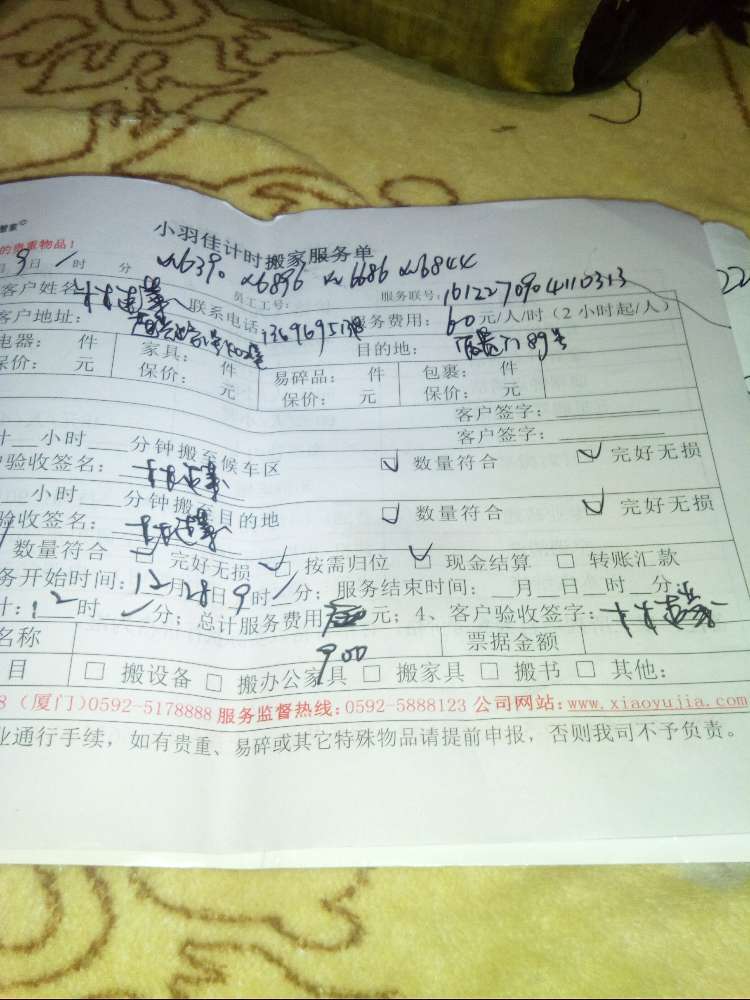 的贵重物品!
小羽佳计时搬家服务单
9日 / 时 分 6390 6896 6686 6844
客户姓名: 员工工号: 服务联号:
联系电话: 服务费用: 60元/人/时(2小时起/人)
客户地址: 目的地: 89号
电器: 件 家具: 件 易碎品: 件 包裹: 件
保价: 元 保价: 元 保价: 元 保价: 元
客户签字:
客户签字:
计 小时 分钟搬至候车区
户验收签名: 数量符合 完好无损
小时 分钟搬至目的地
验收签名: 数量符合 完好无损
数量符合 完好无损 按需归位 现金结算 转账汇款
务开始时间:12月28日9时/分; 服务结束时间: 月 日 时 分
计:12时/分; 总计服务费用 元; 4、客户验收签字:
900
名称 票据金额
目 搬设备 搬办公家具 搬家具 搬书 其他:
8 (厦门)0592-5178888 服务监督热线:0592-5888123 公司网站:www.xiaoyujia.com
业通行手续,如有贵重、易碎或其它特殊物品请提前申报,否则我司不予负责。